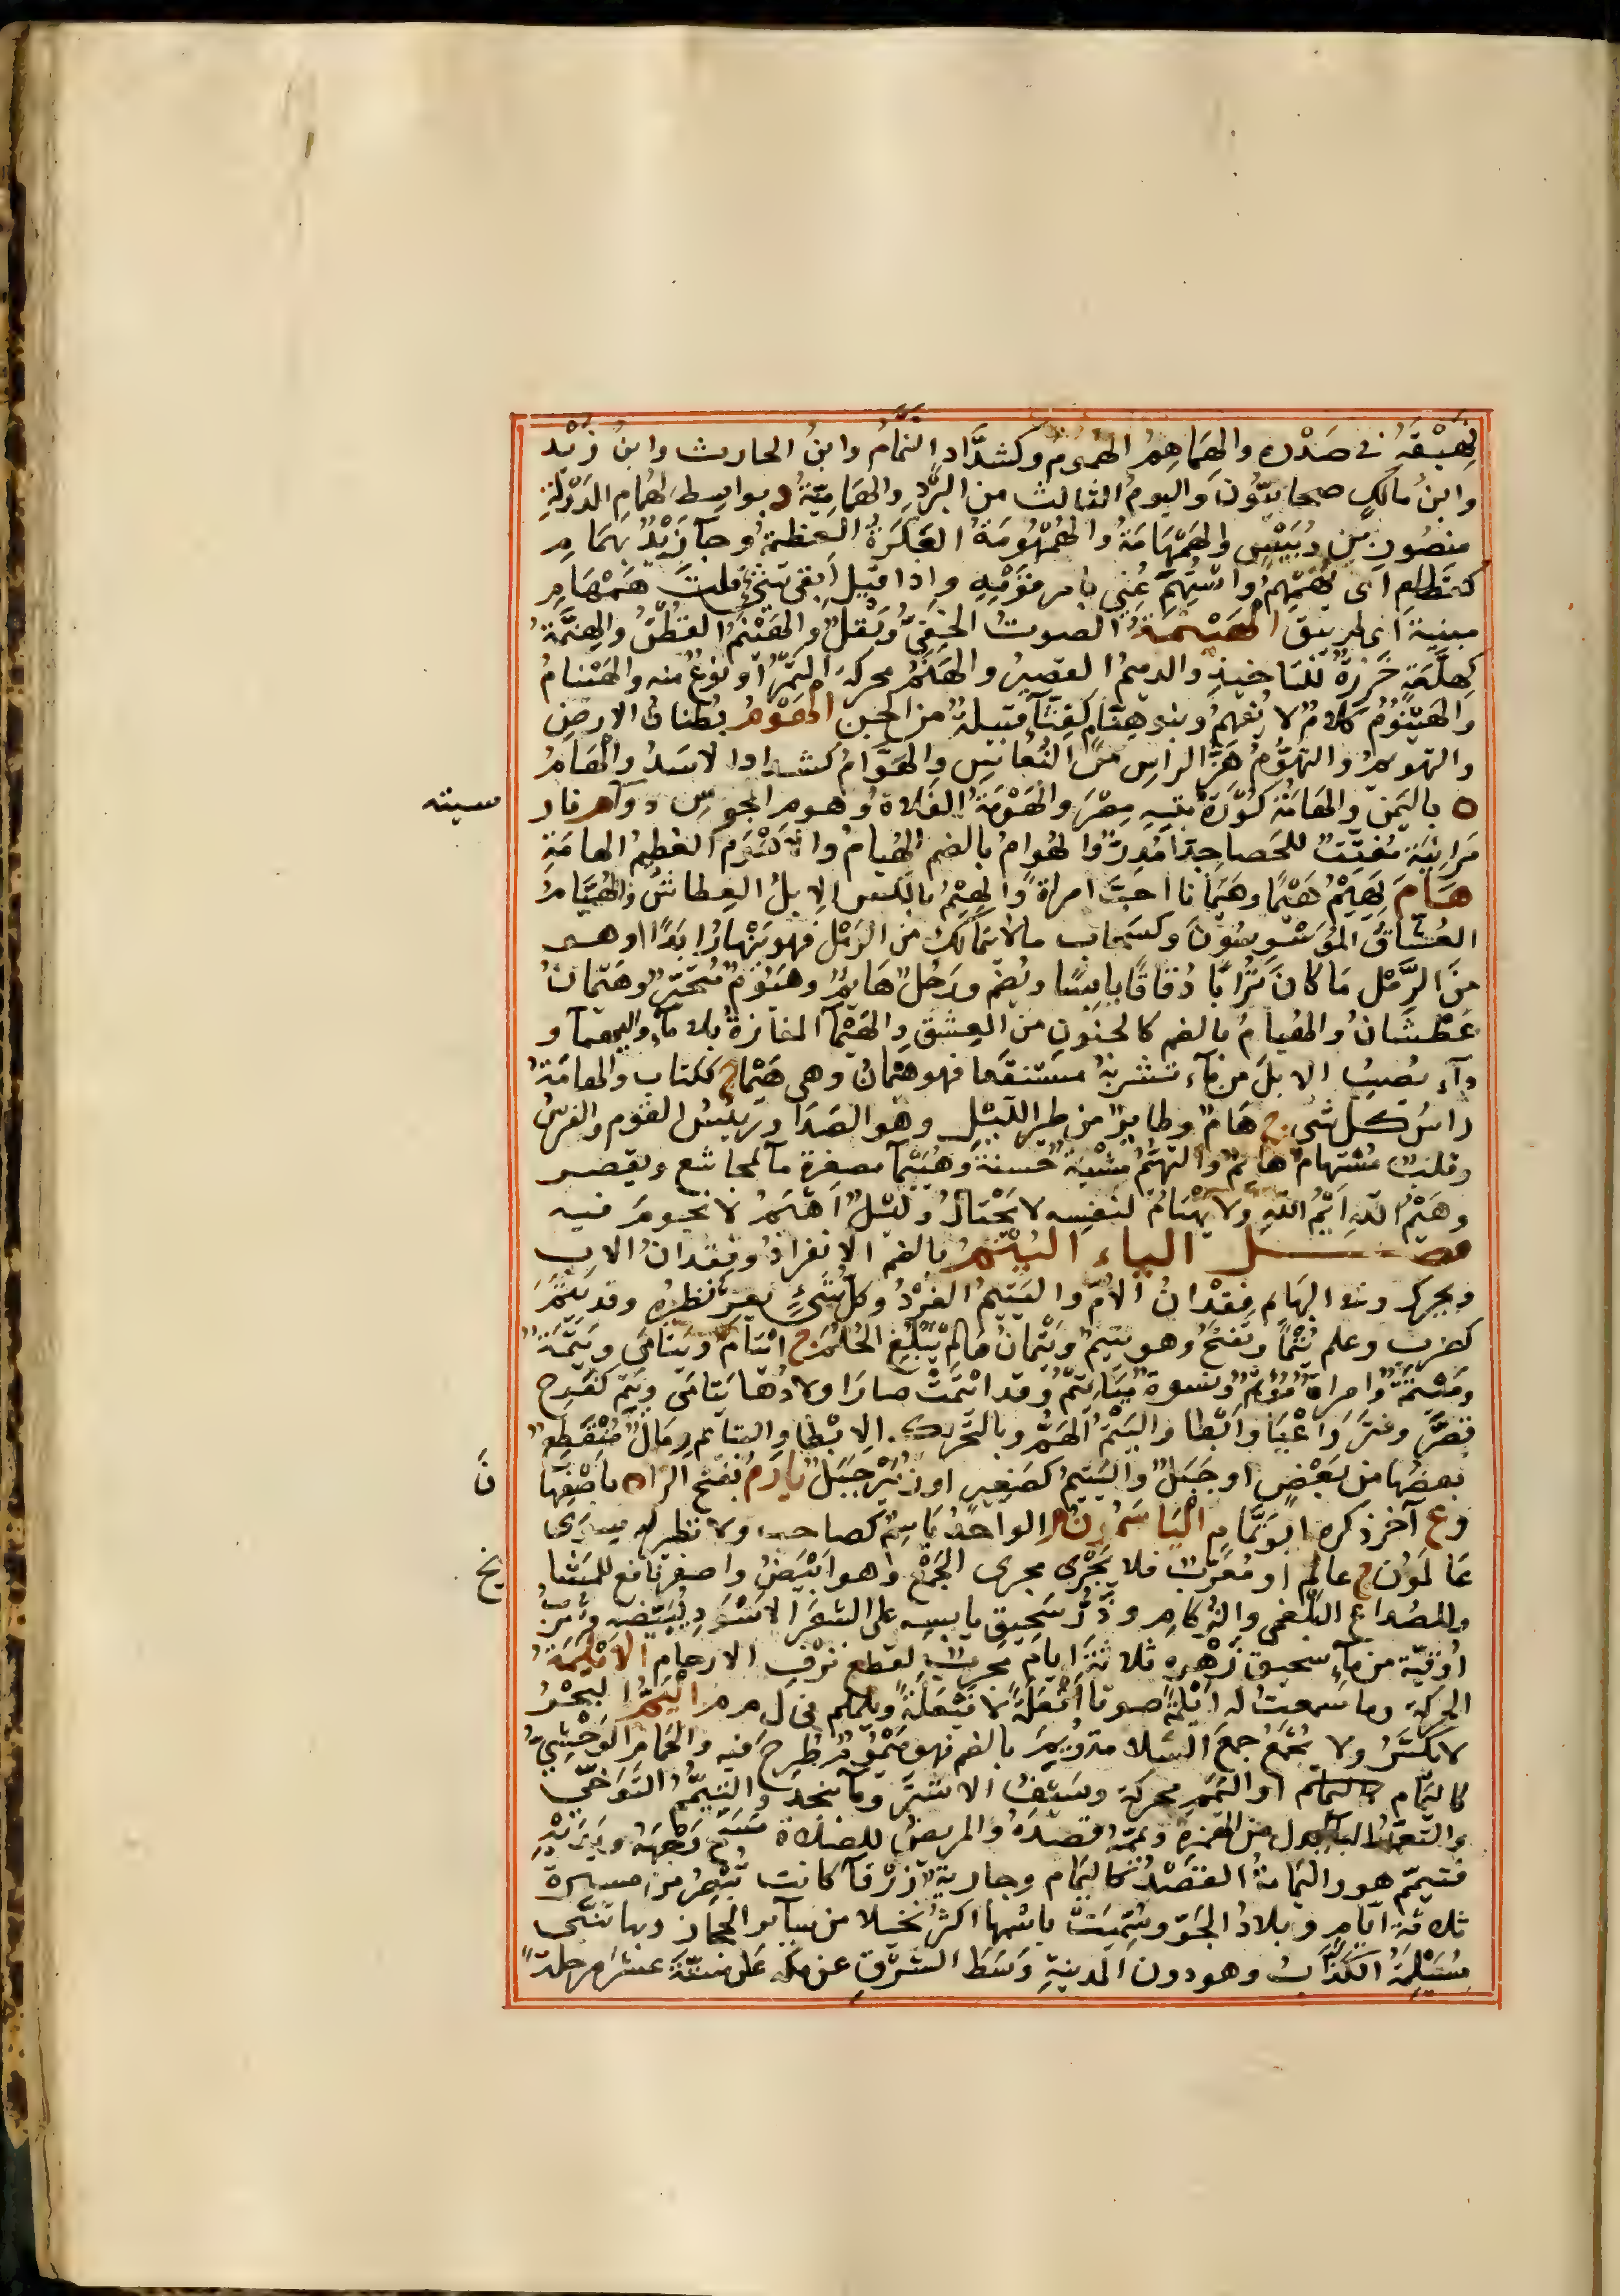 نهيقه في صدره والهماهم الهموم وكشداد النمام وابن الحارث وابن زيد
وابن مالك صحابيون واليوم الثالث من البرد والهمامية د بواسط لهمام الدولة
منصور بن دبيس والهمهامة والهمهومة العكرة العظيمة وجا زيد بهمام
كقطام اى يهمهم واستهم عني بامر قومه واذا قيل ابقى شئ قلت همهام
مبنية اى لم يبق الهينمة الصوت الخفي وبقل والهينم القطن والهنمة
كهلعة خرزة للتاخيذ والدميم القصير والهنم محركة التمر او نوع منه والهينام
والهينوم كلام لا يفهم وبنو هنام كقثا قبيلة من الجن الهوم بطنان الارض
والتهويم والتهوم هز الراس من النعاس والهوام كشداد الاسد والهام
ه باليمن والهامة كورة بتيه مصر والهومة الفلاة وهوم المجوس دوآ م فار
سيته
مرانية مفتت للحصا جدا مدر والهوام بالضم الهيام والاهوم العظيم الهامة
هام يهيم هيما وهيمانا احب امراة والهيم بالكسر الابل العطاش والهيام
العشاق الموسوسون وكسحاب ما لا يتمالك من الرمل فهو ينهار ابدا او هو
من الرمل ما كان ترابا دقاقا يابسا ويضم ورجل هايم وهيوم متحير وهيمان
عطشان والهيام بالضم كالجنون من العشق والهيما المفازة بلا مآ واليهمآ و
دآء يصيب الابل من مآء تشربه مستنقعا فهو هيمان وهى هيما ج ككتاب والهامة
راس كل شى ج هام وطاير من طير الليل وهو الصدا ورييس القوم والفرس
وقلب مستهام هائم والتهيم مشية حسنة وهييما مصغرة مآ لمجاشع ويقصر
وهيم الله ايم الله ولا يهتام لنفسه لا يحتال وليل اهيم لا نجوم فيه
فصل الياء اليتم بالضم الانفراد وفقدان الاب
ويحرك وفى البهايم فقدان الام واليتيم الفرد وكل شئ يعز نظيره وقد يتم
كضرب وعلم يتما ويفتح وهو يتيم ويتمان مالم يبلغ الحلم ج ايتام ويتامى ويتمة
وميتمة وامراة موتم ونسوة مياتيم وقد ايتمت صار اولادها يتامى ويتم كفرح
قصر وفتر واعيا وابطا واليتم الهم وبالتحريك الابطا واليتايم رمال منقطع
بعضها من بعض او جبل واليتيم كصغير او زبير جبل يارم بفتح الرا ه باصفها
ن
و ع آخر ذكره ابو تمام الياسمون الواحد ياسم كصاحب ولا نظير له سوى
عالمون ج عالم او معرب فلا يجرى مجرى الجمع وهو ابيض واصفر نافع للمشا
يخ
وللصداع البلغمى والزكام وذر سحيق يابسه على الشعر الاسود يبيضه وشرب
اوقية من مآء سحيق زهره ثلاثة ايام مجرب لقطع نزف الارحام الايلمة
الحركة وما سمعت له ايلمة صوتا افعلة لا فيعلة ويلملم فى ل م م اليم البحر
لا يكسر ولا يجمع جمع السلامة ويم بالضم فهو ميموم طرح فيه والحمام الوحشي
كاليمام او اليمم محركة وسيف الاشتر ومآ بنجد والتيمم التوخى
والتعمد اليا بدل من الهمزة ويممه قصده والمريض للصلاة مسح وجهه ويديه
فتيمم هو واليمامة القصد كاليمام وجارية زرقآ كانت تبصر من مسيرة
ثلاثة ايام وبلاد الجو وسميت باسمها اكثر نخلا من سآير الحجاز وبها تنبى
مسيلمة الكذاب وهو دون المدينة وسط الشرق عن مكه على ستة عشر مرحلة